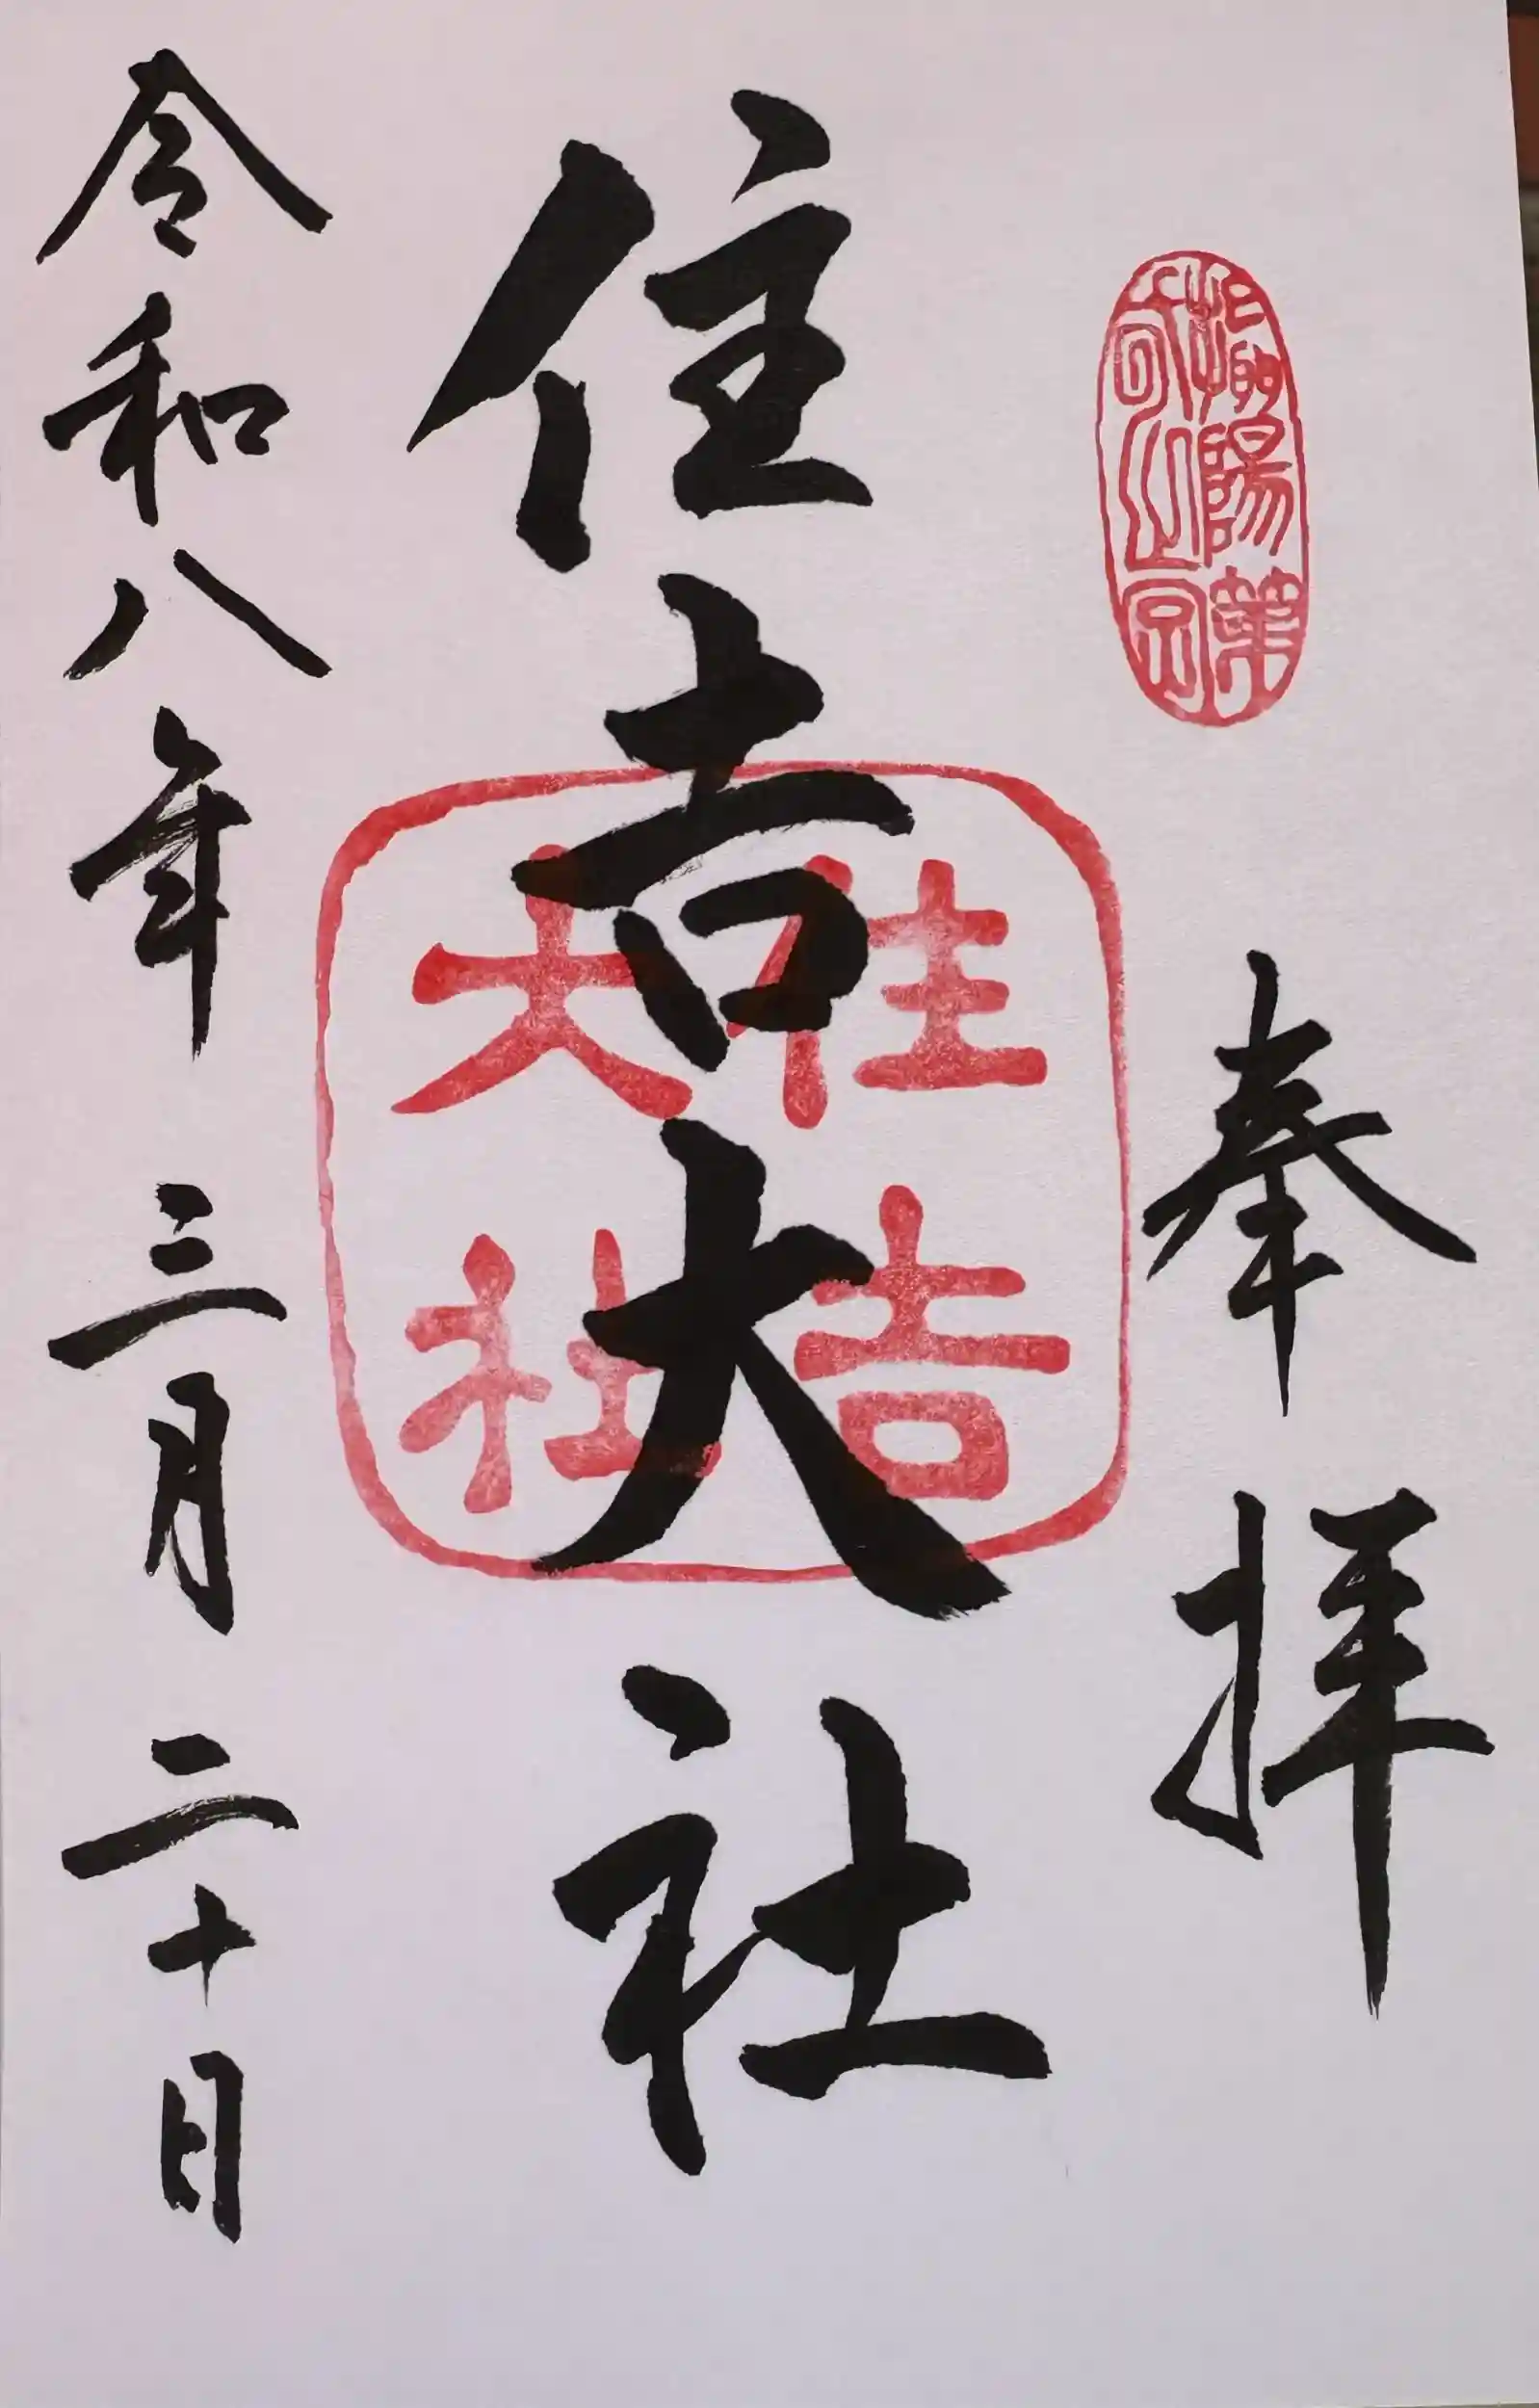 奉拝
住吉大社
住吉
大社
令和八年 三月 二十日